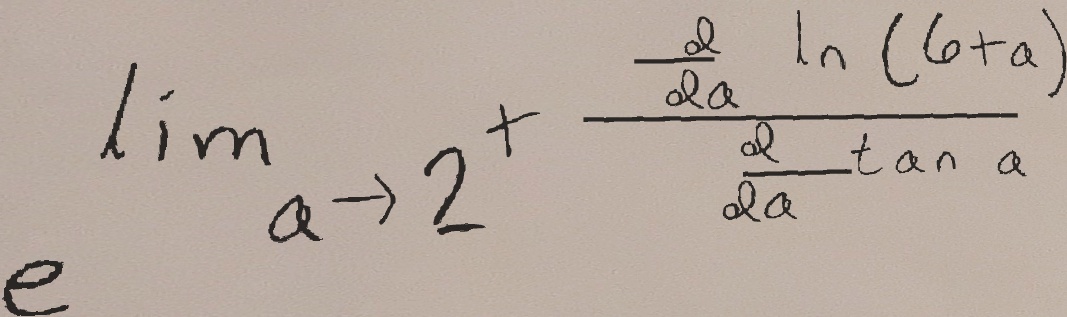 e^{\lim_{a \to 2^+} \frac{\frac{d}{da} \ln (6+a)}{\frac{d}{da} \tan a}}